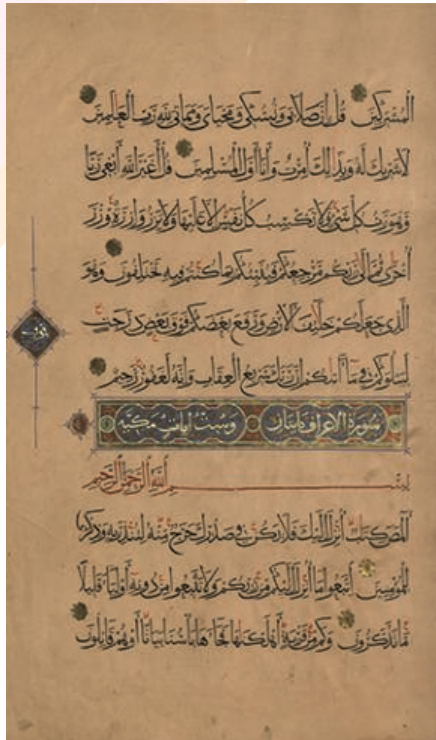 الْمُشْرِكِينَ قُلْ إِنَّ صَلَاتِى وَنُسُكِى وَمَحْيَاىَ وَمَمَاتِى لِلَّهِ رَبِّ الْعَالَمِينَ
لَا شَرِيكَ لَهُ وَبِذَالِكَ أُمِرْتُ وَأَنَا أَوَّلُ الْمُسْلِمِينَ قُلْ أَغَيْرَ اللَّهِ أَبْغِى رَبًّا
وَهُوَ رَبُّ كُلِّ شَىْءٍ وَلَا تَكْسِبُ كُلُّ نَفْسٍ إِلَّا عَلَيْهَا وَلَا تَزِرُ وَازِرَةٌ وِزْرَ
أُخْرَى ثُمَّ إِلَى رَبِّكُمْ مَرْجِعُكُمْ فَيُنَبِّئُكُمْ بِمَا كُنْتُمْ فِيهِ تَخْتَلِفُونَ وَهُوَ
الَّذِى جَعَلَكُمْ خَلَائِفَ الْأَرْضِ وَرَفَعَ بَعْضَكُمْ فَوْقَ بَعْضٍ دَرَجَاتٍ
لِيَبْلُوَكُمْ فِى مَا آتَاكُمْ إِنَّ رَبَّكَ سَرِيعُ الْعِقَابِ وَإِنَّهُ لَغَفُورٌ رَحِيمٌ
سورة الاعراف مايتان وست ايات مكية
بِسْمِ اللَّهِ الرَّحْمَنِ الرَّحِيمِ
الٓمٓصٓ كِتَابٌ أُنْزِلَ إِلَيْكَ فَلَا يَكُنْ فِى صَدْرِكَ حَرَجٌ مِنْهُ لِتُنْذِرَ بِهِ وَذِكْرَى
لِلْمُؤْمِنِينَ اتَّبِعُوا مَا أُنْزِلَ إِلَيْكُمْ مِنْ رَبِّكُمْ وَلَا تَتَّبِعُوا مِنْ دُونِهِ أَوْلِيَاءَ قَلِيلًا
مَا تَذَكَّرُونَ وَكَمْ مِنْ قَرْيَةٍ أَهْلَكْنَاهَا فَجَاءَهَا بَأْسُنَا بَيَاتًا أَوْ هُمْ قَائِلُونَ